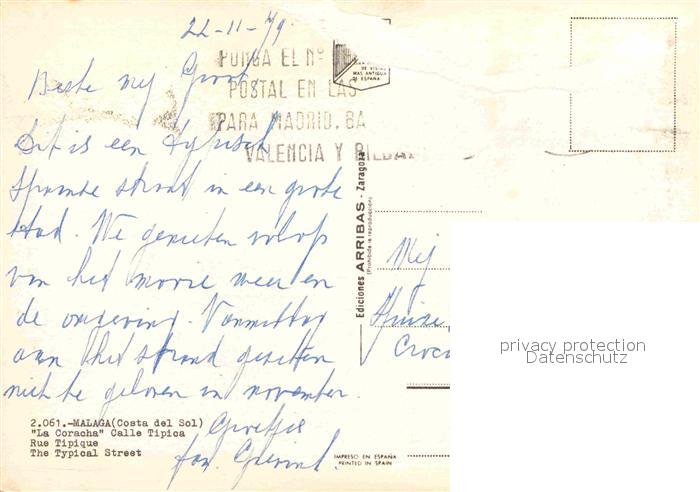 22-11-79
Beste mej Groot,
Dit is een typisch
Spaanse straat in een grote
stad. We genieten volop
van het mooie weer en
de omgeving. Vanmiddag
aan het strand gezeten
niet te geloven in november.
Groetjes
fam.
2.061.-MALAGA(Costa del Sol)
"La Coracha" Calle Tipica
Rue Tipique
The Typical Street
PONGA EL Nº
POSTAL EN LAS
PARA MADRID, BA
VALENCIA Y BILBA
DE VISTAS
MAS ANTIGUA
DE ESPAÑA
Ediciones ARRIBAS - Zaragoza
(Prohibida la reproducción)
Mej
Huize
Croc
IMPRESO EN ESPAÑA
PRINTED IN SPAIN
privacy protection
Datenschutz